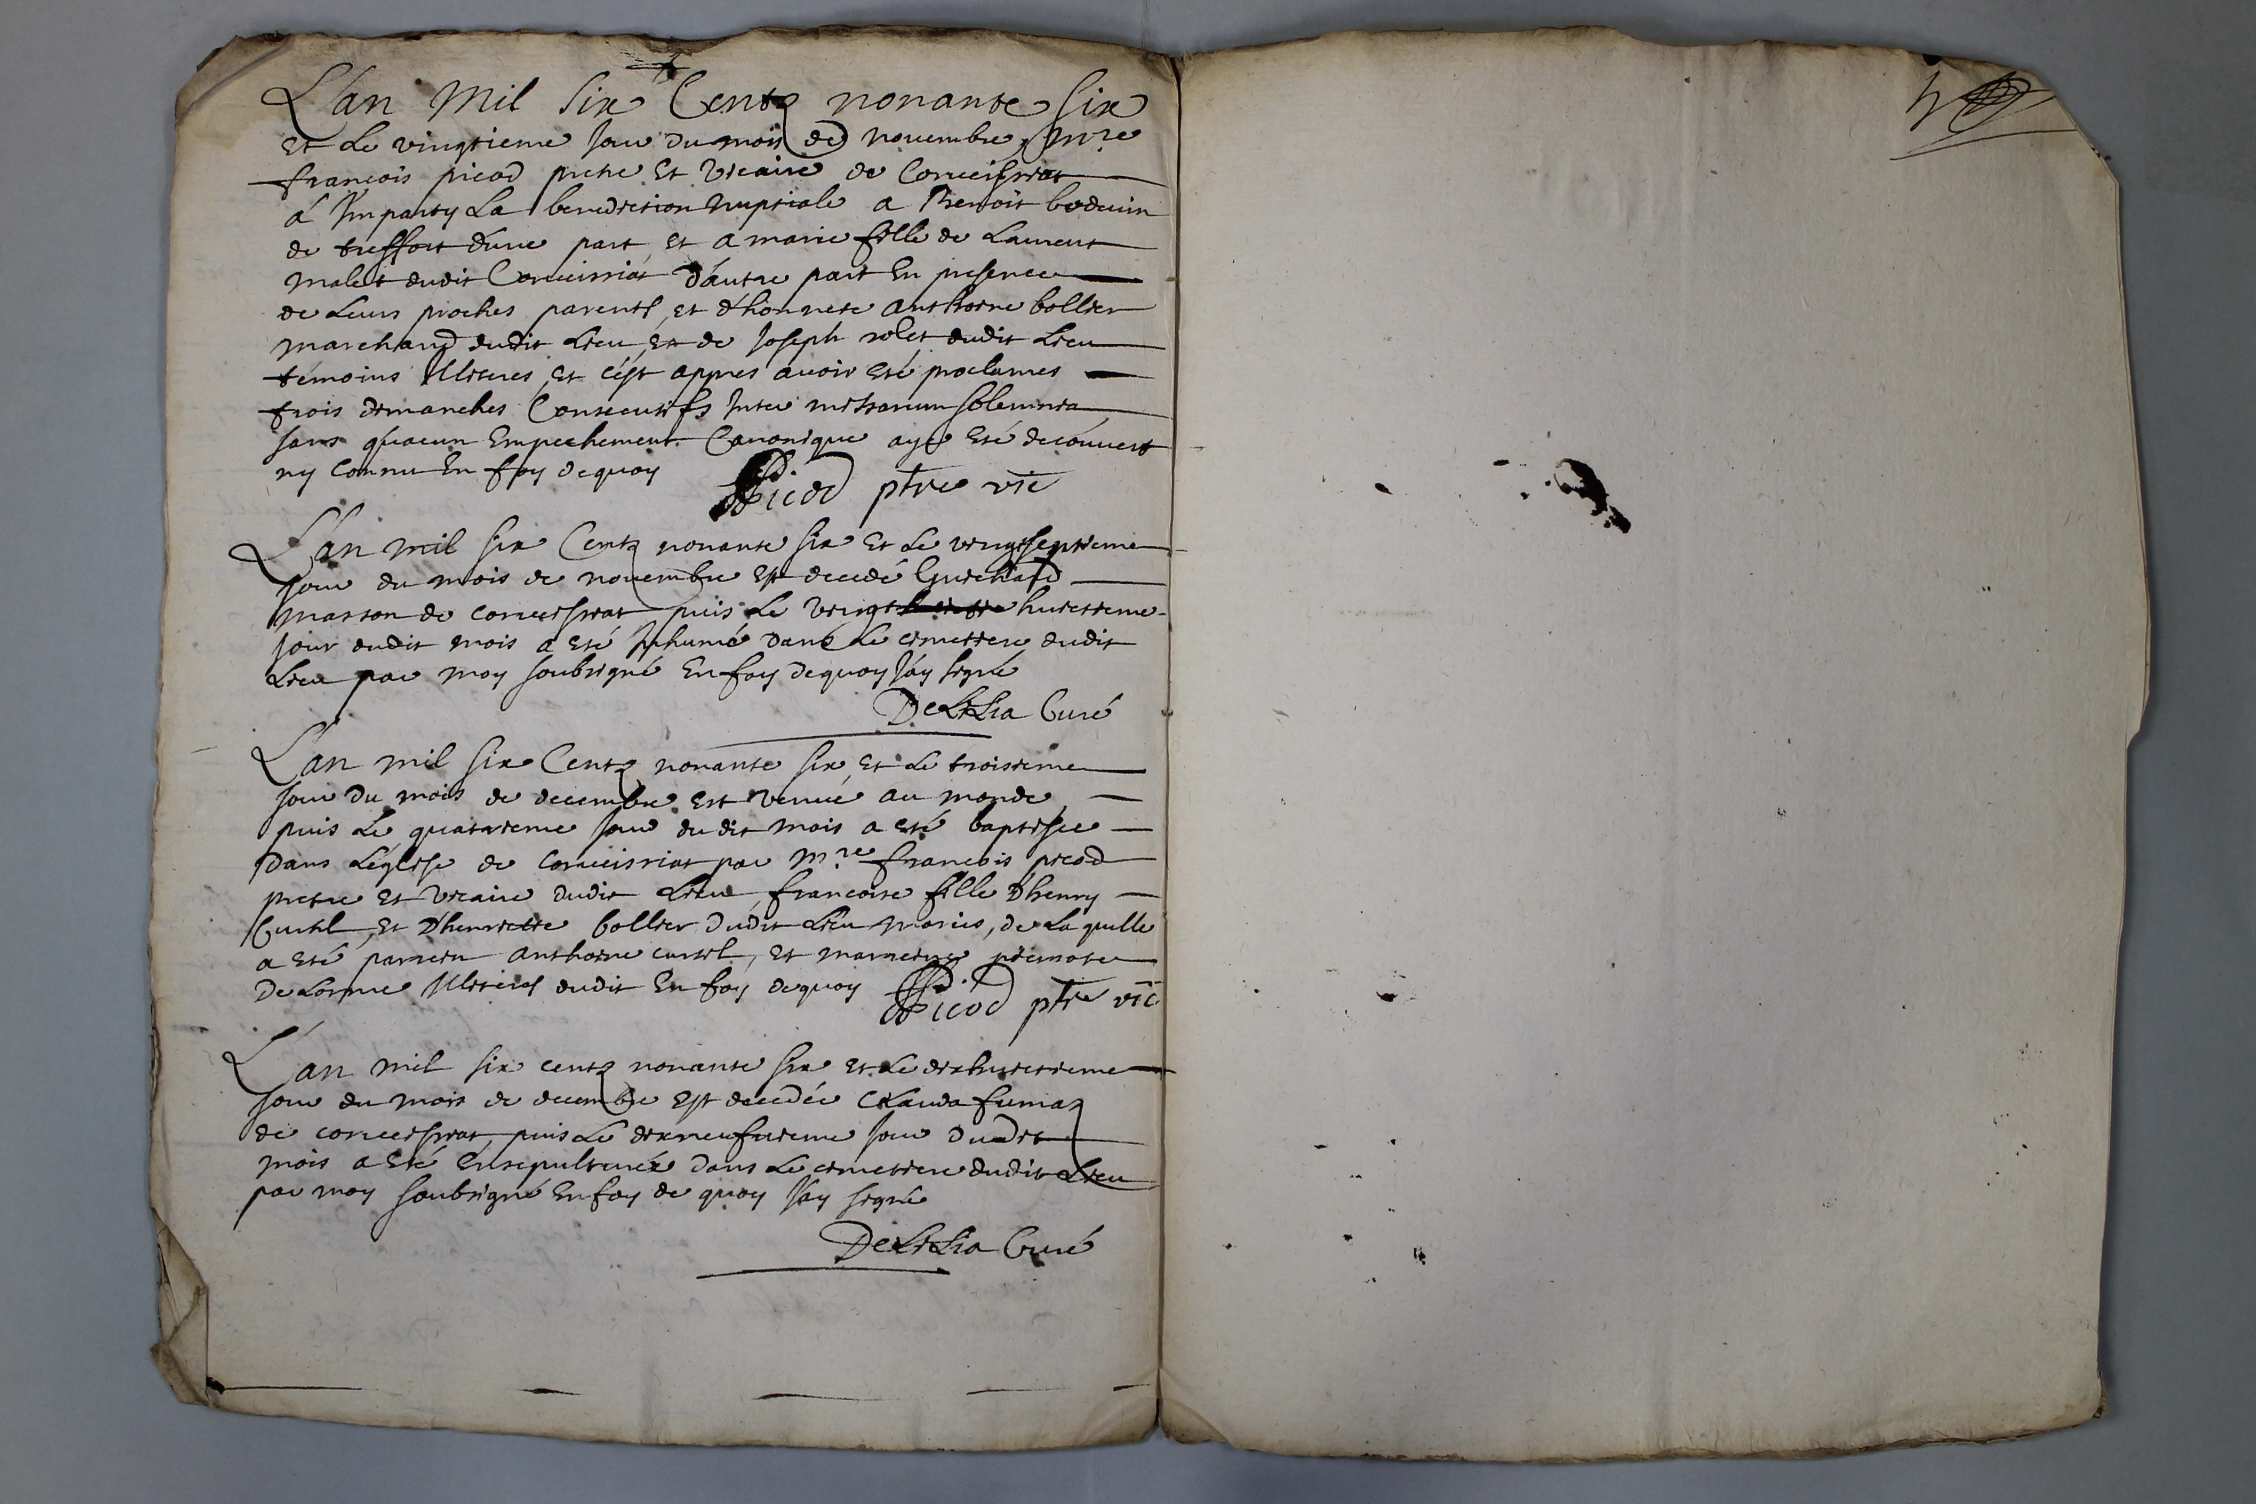 L'an Mil Six Centz nonante Six
et Le vingtieme Jour du mois de novembre Mre
françois picod pretre et vicaire de Corveissiat
á Jmparty La benediction Nuptiale a Benoit boduin
de treffort d'une part et a marie fille de Laurent
malet dudit Corveissiat d'autre part En presence
de Leurs proches parents, et d'honnete Anthoine bollier
marchand dudit Lieu, et de Joseph rolet dudit Lieu
témoins Jlliteres et c'est appres avoir eté proclames
trois dimanches Consecutifs Inter missarum solemnia
sans qu'aucun Empechement Canonique aye eté decouvert
ny connu En foy dequoy
Picod ptre vic
L'an mil six Centz nonante six et Le vingtseptieme
Jour du mois de novembre est decedé Guichard
masson de corveissiat puis Le vingt huictieme
Jour dudit mois a eté Jnhumé dans Le cimettiere dudit
Lieu par moy soubsigné En foy dequoy J'ay signé
DeLiLia Curé
L'an mil six Centz nonante six, et Le troisieme
Jour du mois de decembre est venue au monde
puis Le quatrieme Jour dudit mois a eté baptisee
Dans L'eglise de Corveissiat par Mre françois picod
pretre et vicaire dudit Lieu francoise fille d'henry
Curtil, et d'henriette bollier dudit Lieu maries, de Laquelle
a eté parrein anthoine curtil, et marreine piemote
DeLorme Jlliteres dudit En foy dequoy
Picod ptre vic
L'an mil six centz nonante six et Le dixhuictieme
Jour du mois de decembre est decedée Clauda fumaz
de corveissiat, puis Le dixneufvieme Jour dudit
mois a eté ensepulturée dans Le cimetiere dudit Lieu
par moy soubsigné En foy de quoy J'ay signé
DeLiLia Curé